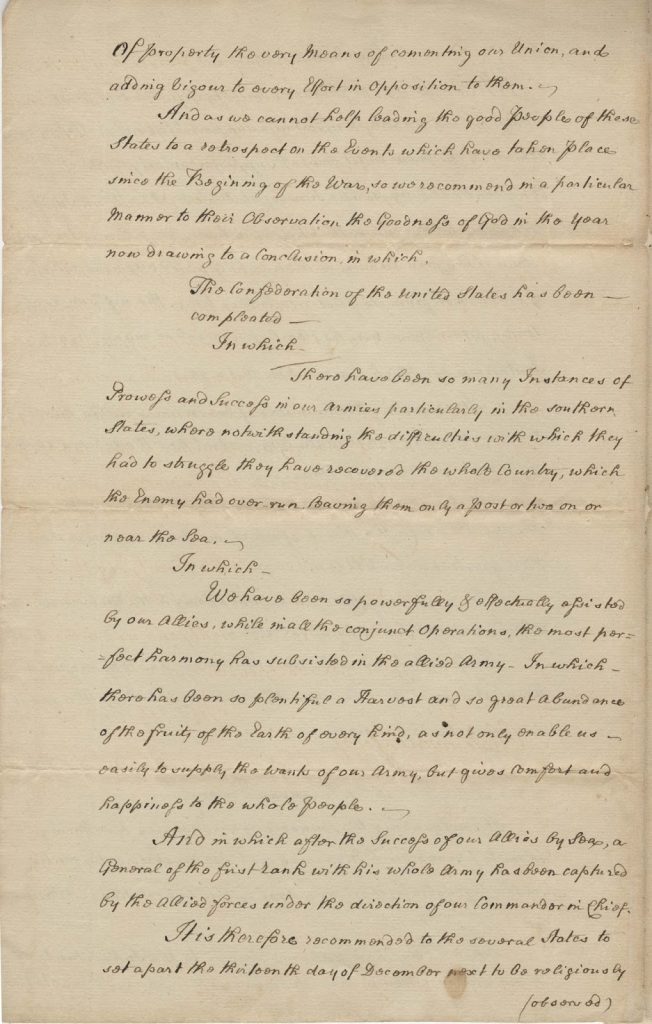 Of property the very Means of cementing our Union, and
adding Vigour to every Effort in opposition to them. ~
And as we cannot help leading the good People of these
States to a retrospect on the Events which have taken Place
since the Begining of the War, so we recommend in a particular
Manner to their Observation the Goodness of God in the Year
now drawing to a Conclusion, in which.
The Confederation of the United States has been —
compleated —
In which —
There have been so many Instances of
Prowess and Success in our Armies particularly in the southern
States, where notwithstanding the difficulties with which they
had to struggle they have recovered the whole Country, which
the Enemy had over run leaving them only a Post or two on or
near the Sea. ~
In which —
We have been so powerfully & effectually assisted
by our Allies, while in all the conjunct Operations, the most per=
=fect harmony has subsisted in the allied Army — In which —
there has been so plentiful a Harvest and so great abundance
of the fruits of the Earth of every kind, as not only enable us —
easily to supply the wants of our Army, but gives comfort and
happiness to the whole People. ~
And in which after the Success of our Allies by Sea, a
General of the first Rank with his whole Army has been captured
by the Allied forces under the direction of our Commander in Chief.
It is therefore recommended to the several States to
set apart the thirteenth day of December next to be religiously
(observed)